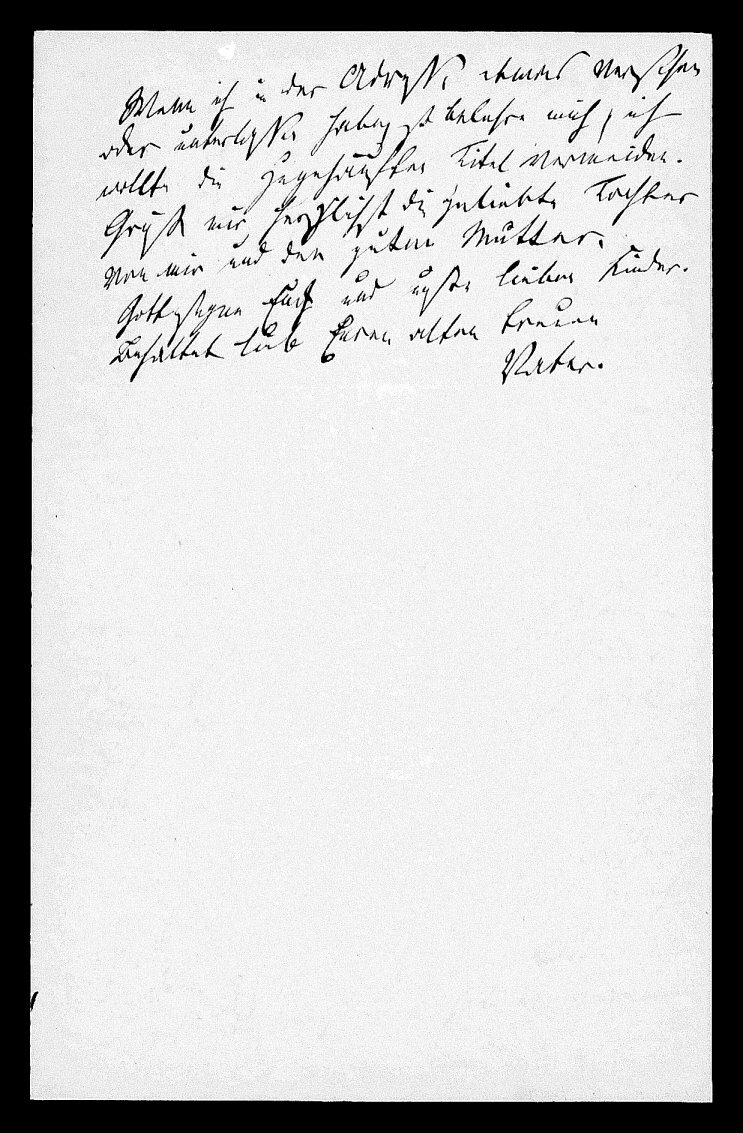 Wenn ich in der Adresse etwas versehen
oder unterlassen habe, so belehre mich, ich
wollte die Titel vermeiden.
Grüße mir herzlichst die geliebte Tochter
von mir und der guten Mutter.
Gott segne Euch und unsre lieben Kinder.
Behaltet lieb Euren alten treuen
Vater.